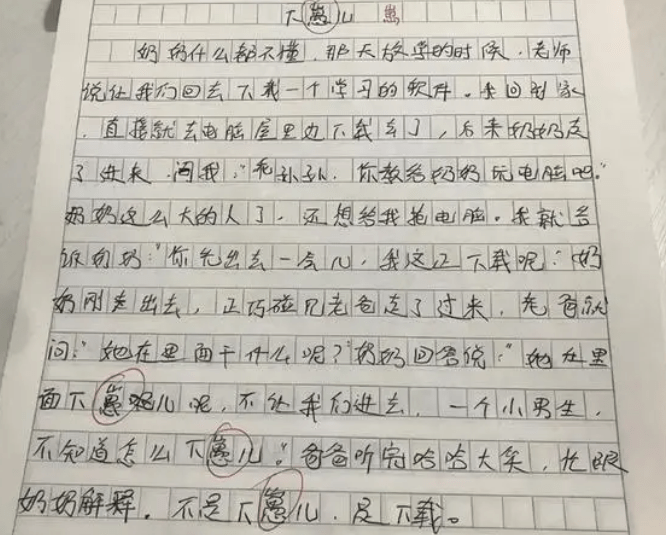 下崽儿 崽
奶奶什么都不懂，那天放学的时候，老师
说让我们回去下载一个学习的软件。我回到家
，直接就去电脑屋里边下载去了，后来奶奶走
了进来，问我：“乖孙孙，你教给奶奶玩电脑吧。”
奶奶这么大的人了，还想给我抢电脑。我就告
诉奶奶：“你先出去一会儿，我这正下载呢；奶
奶刚走出去，正巧碰见老爸走了过来，老爸就
问：“她在里面干什么呢？”奶奶回答说：“她在里
面下崽儿呢，不让我们进去，一个小男生，
不知道怎么下崽儿。”爸爸听完哈哈大笑，忙跟
奶奶解释，不是下崽儿，是下载。